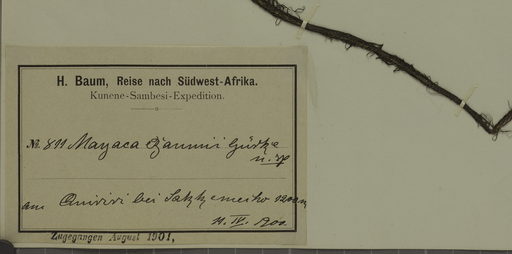 H. Baum, Reise nach Südwest-Afrika.
Kunene-Sambesi-Expedition.
№ 811 Mayaca Baumii Gürke
n. sp
am Quiriri bei
IV. 1900
Zugegangen August 1901,